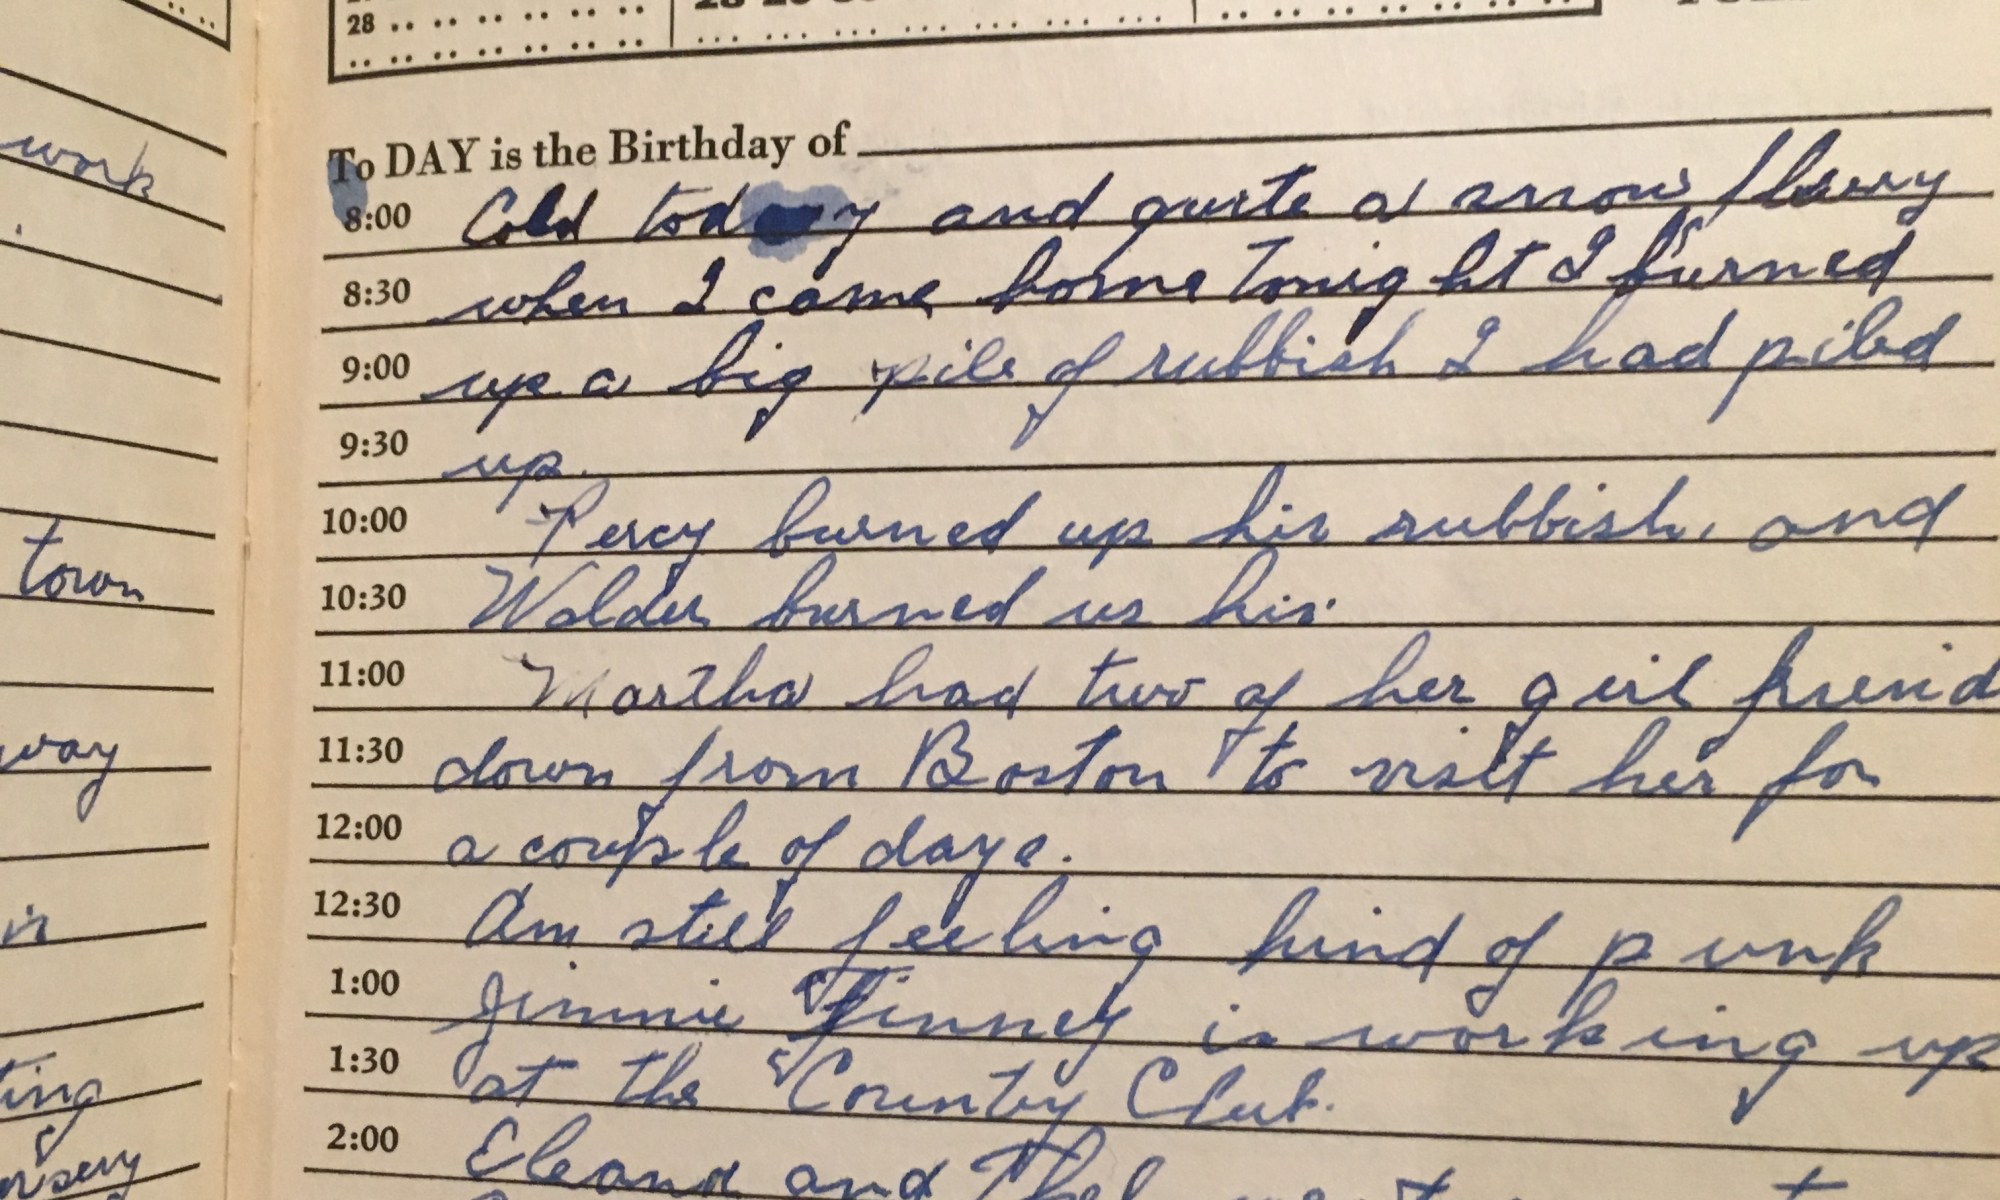 work
town
way
in
ting
28
To DAY is the Birthday of
8:00 Cold today and quite a snow flurry
8:30 when I came home Tonight I burned
9:00 up a big pile of rubbish I had piled
9:30 up.
10:00 Percy burned up his rubbish, and
10:30 Walder burned us his.
11:00 Martha had two of her girl freind
11:30 down from Boston to visit her for
12:00 a couple of days.
12:30 Am still feeling kind of punk
1:00 Jimmie Finney is working up
1:30 at the Country Club.
2:00 Eleanor and